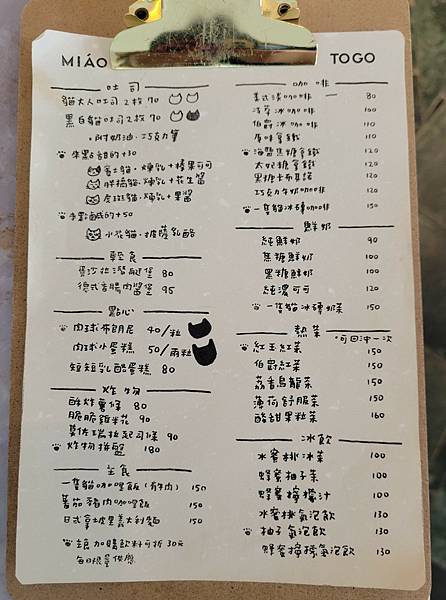 MIÁO
TOGO
吐司
貓大人吐司2枚 70
黑白貓吐司2枚 70
附奶油.巧克力筆
來點甜的+30
賓士貓.煉乳+榛果可可
胖橘貓.煉乳+花生醬
煉乳+果醬
來點鹹的+50
小花貓.披薩乳酪
輕食
80
德式香腸肉醬堡 95
點心
肉球布朗尼 40/粒
肉球小蛋糕 50/兩粒
短短乳酪蛋糕 80
炸物
酥炸薯條 80
脆脆雞米花 90
莫佐瑞拉起司條 90
炸物拼盤 180
主食
一隻貓咖哩飯(牛肉) 150
蕃茄豬肉咖哩飯 150
日式拿坡里義大利麵 150
主食加購飲料可折30元
每日限量供應
咖啡
美式淡咖啡 80
冰咖啡 100
伯爵冰咖啡 110
原味拿鐵 110
海鹽焦糖拿鐵 120
太妃糖拿鐵 120
黑糖卡布其諾 120
巧克力牛奶咖啡 120
一隻貓冰磚咖啡 150
鮮奶
純鮮奶 90
焦糖鮮奶 100
黑糖鮮奶 100
純濃可可 120
一隻貓冰磚奶茶 150
熱茶
*可回沖一次
紅玉紅茶 150
伯爵紅茶 150
荔香烏龍茶 150
薄荷舒服茶 150
酸甜果粒茶 160
冰飲
水蜜桃冰茶 100
蜂蜜柚子茶 100
蜂蜜檸檬汁 100
水蜜桃氣泡飲 130
柚子氣泡飲 130
蜂蜜檸檬氣泡飲 130